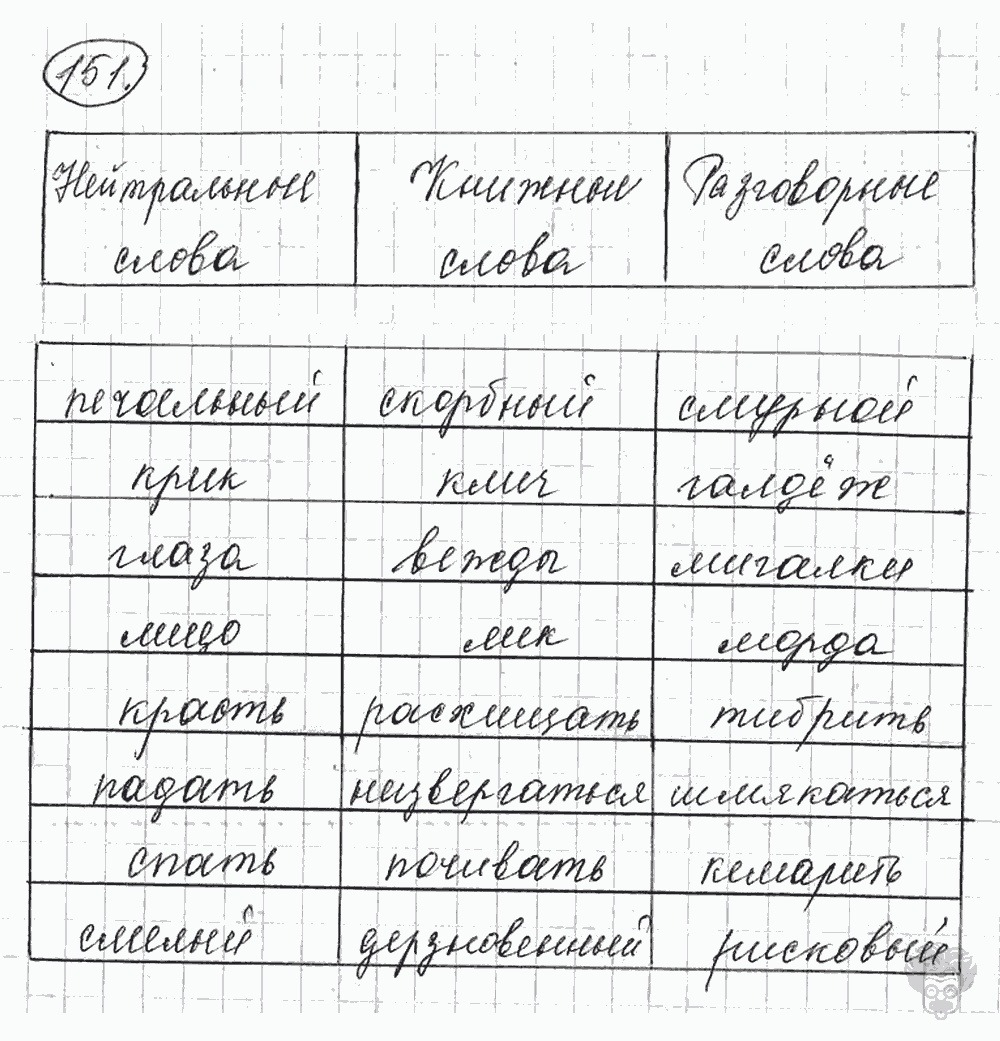 151.
Нейтральные Книжные Разговорные
слова слова слова
печальный скорбный смурной
крик клич галдёж
глаза вежды мигалки
лицо лик морда
красть расхищать тибрить
падать низвергаться шмякаться
спать почивать кемарить
смелый дерзновенный рисковый